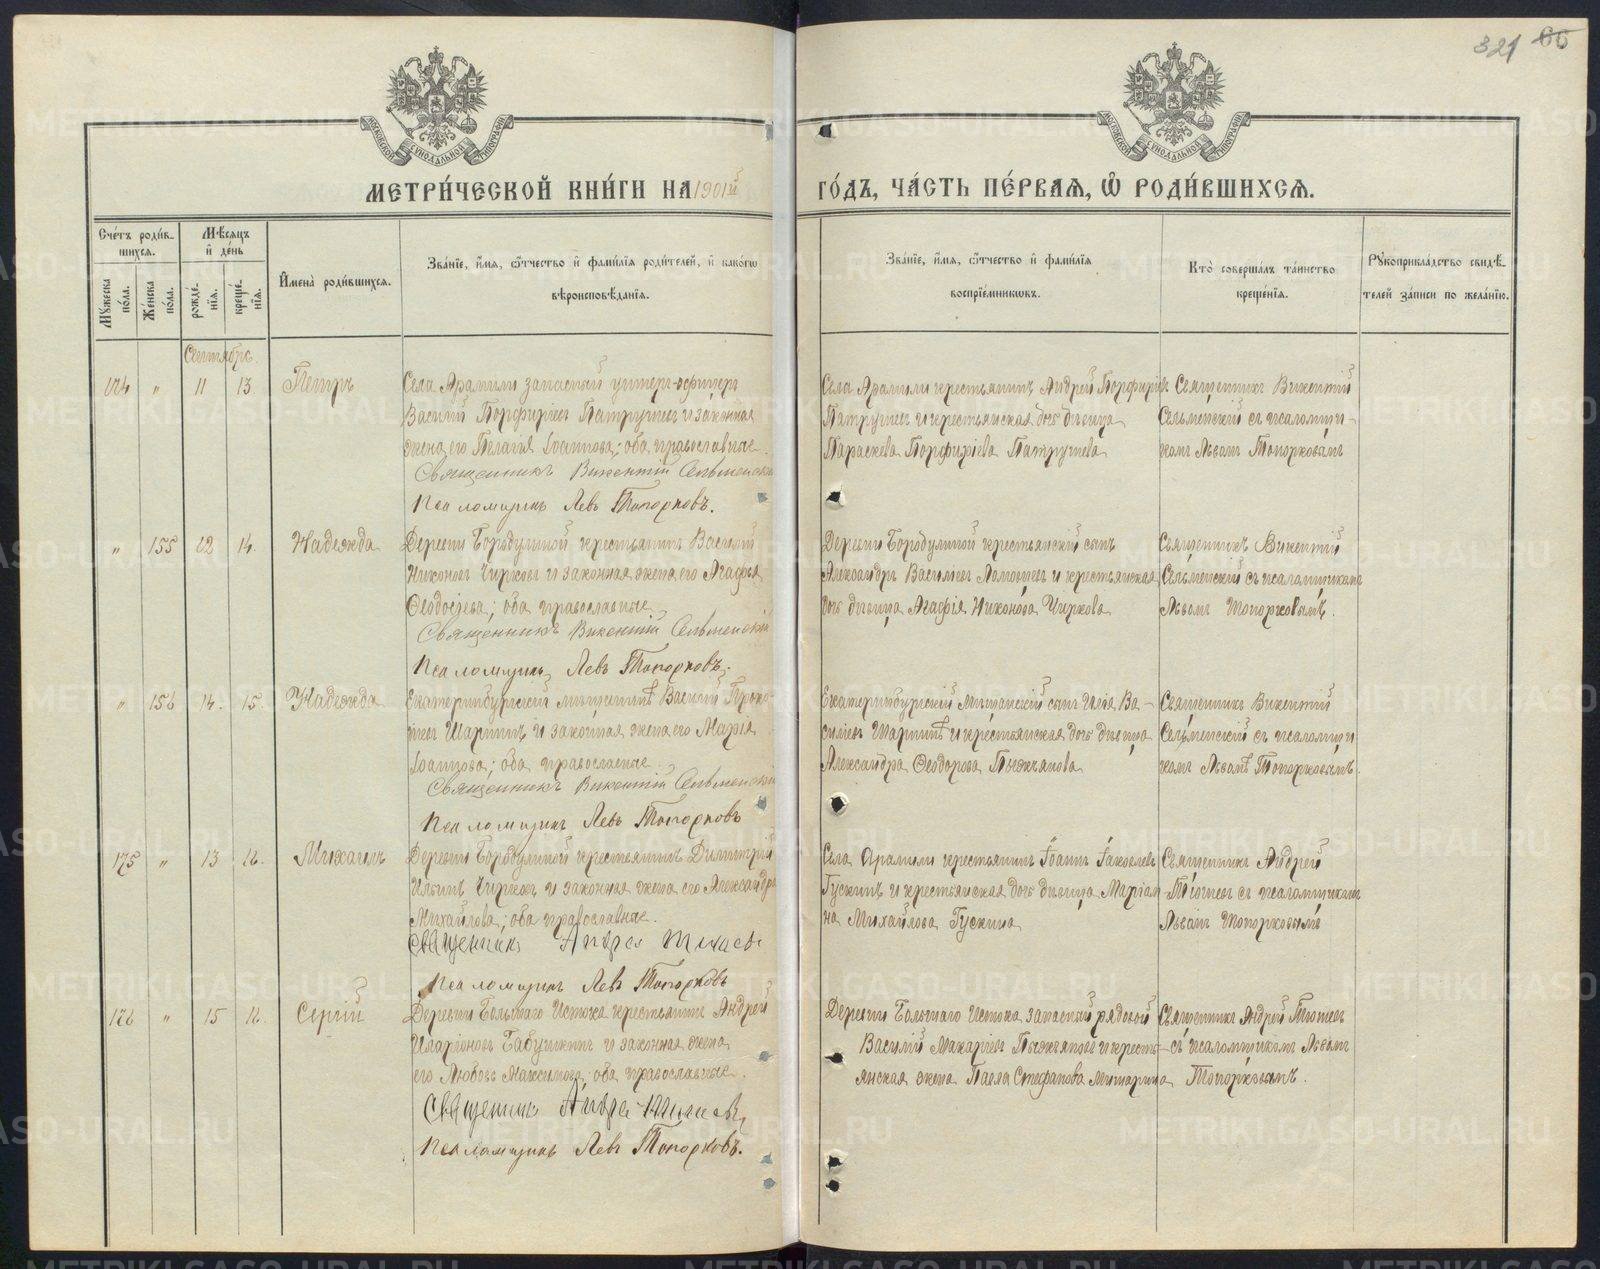 321 66
МОСКОВСКОЙ СУНОДАЛЬНОЙ ТИПОГРАФІИ
МОСКОВСКОЙ СУНОДАЛЬНОЙ ТИПОГРАФІИ
МЕТРИ́ЧЕСКОЙ КНИ́ГИ НА 1901й
ГО́ДЪ, ЧА́СТЬ ПЕ́РВАЯ, Ѽ РОДИ́ВШИХСЯ.
Сче́тъ роди́в-
шихся.
Мꙋжеска по́ла.
Же́нска по́ла.
Мѣ́сяцъ
и де́нь
рожде́-
нїя.
креще́-
нїя.
Имена̀ роди́вшихся.
Зва́нїе, и́мя, ѻ҆́тчество и фами́лїя роди́телей, и како́гѡ
вѣроисповѣ́данїя.
Зва́нїе, и́мя, ѻ҆́тчество и фами́лїя
воспрїе́мникѡвъ.
Кто̀ соверша́лъ та́инство
креще́нїя.
Рꙋкоприкла́дство свидѣ́-
телей за́писи по жела́нїю.
Сентябрь
174 " 11 13 Петръ
Села Арамили запасный унтеръ-офицеръ
Василій Порфиріевъ Патрушевъ и законная
жена его Пелагія Іоаннова; оба православные.
Священникъ Викентій Сельменскій
Псаломщикъ Левъ Топорковъ.
Села Арамили крестьянинъ Андрей Порфиріевъ
Патрушевъ и крестьянская дочь девица
Параскева Порфиріева Патрушева
Священникъ Викентій
Сельменскій съ псаломщи-
комъ Львомъ Топорковымъ
" 155 12 14. Надежда
Деревни Бородулиной крестьянинъ Василій
Никоновъ Чирковъ и законная жена его Агафья
Ѳеодосіева; оба православные.
Священникъ Викентій Сельменскій
Псаломщикъ Левъ Топорковъ.
Деревни Бородулиной крестьянскій сынъ
Александръ Васильевъ и крестьянская
дочь девица Агафія Никонова Чиркова
Священникъ Викентій
Сельменскій съ псаломщикомъ
Львомъ Топорковымъ.
" 156 14. 15. Надежда
Екатеринбургскій мещанинъ Василій Проко-
пьевъ и законная жена его Марія
Іоаннова; оба православные.
Священникъ Викентій Сельменскій
Псаломщикъ Левъ Топорковъ
Екатеринбургскій Мещанскій сынъ Илія Ва-
сильевъ и крестьянская дочь девица
Александра Ѳеодорова Пыжьянова
Священникъ Викентій
Сельменскій съ псаломщи
комъ Львомъ Топорковымъ.
175 " 13 16. Михаилъ
Деревни Бородулиной крестьянинъ Димитрій
Ильинъ Чирковъ и законная жена его Александра
Михайлова; оба православные.
Священникъ Андрей
Псаломщикъ Левъ Топорковъ
Села Арамили крестьянинъ Іоаннъ Іаковлевъ
Гускинъ и крестьянская дочь девица Маріам-
на Михайлова Гускина
Священникъ Андрей
съ псаломщикомъ
Львомъ Топорковымъ
176 " 15 16. Сергій
Деревни Большаго Истока крестьянинъ Андрей
Иларіоновъ Бабушкинъ и законная жена
его Любовь Максимова; оба православные.
Священникъ Андрей
Псаломщикъ Левъ Топорковъ.
Деревни Большаго Истока запасный рядовой
Василій Макаріевъ Пыжьяновъ и кресть-
янская жена Павла Стефанова
Священникъ Андрей
съ псаломщикомъ Львомъ
Топорковымъ.
METRIKI.GASO-URAL.RU